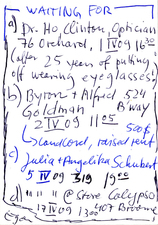 WAITING FOR
a) Dr. Ho, Clinton, Optician
76 Orchard, 1 IV 09 16 30
(after 25 years of putting
off wearing eyeglasses)
b) Byron + Alfred 524
Goldman B'way
2 IV 09 11 05
500$
landlord, raised rent
c) Julia + Angelika Schubert
5 IV 09 319 19 00
d) " " " @ Store Calypso
17 IV 09 1300 107 Broome